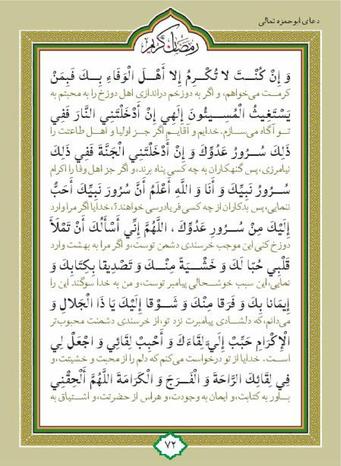 دعای ابوحمزه ثمالی
رمضان کریم
وَ إِنْ كُنْتَ لا تُكْرِمُ إِلا أَهْلَ الْوَفَاءِ بِكَ فَبِمَنْ
کرمت می‌خواهم، و اگر به دوزخم دراندازی اهل دوزخ را به محبتم به
يَسْتَغِيثُ الْمُسِيئُونَ إِلَهِي إِنْ أَدْخَلْتَنِي النَّارَ فَفِي
تو آگاه می‌سازم. خدایم و آقایم اگر جز اولیا و اهل طاعتت را
ذَلِكَ سُرُورُ عَدُوِّكَ وَ إِنْ أَدْخَلْتَنِي الْجَنَّةَ فَفِي ذَلِكَ
نیامرزی، پس گنهکاران به چه کسی پناه برند، و اگر جز اهل وفا را اکرام
سُرُورُ نَبِيِّكَ وَ أَنَا وَ اللَّهِ أَعْلَمُ أَنَّ سُرُورَ نَبِيِّكَ أَحَبُّ
ننمایی، پس بدکاران از چه کسی فریادرسی خواهند؟، خدایا اگر مرا وارد
إِلَيْكَ مِنْ سُرُورِ عَدُوِّكَ ، اللَّهُمَّ إِنِّي أَسْأَلُكَ أَنْ تَمْلَأَ
دوزخ کنی این موجب خرسندی دشمن توست، و اگر مرا به بهشت وارد
قَلْبِي حُبّا لَكَ وَ خَشْيَةً مِنْكَ وَ تَصْدِيقا بِكِتَابِكَ وَ
نمایی، این سبب خوشحالی پیامبر توست، و من به خدا سوگند این را
إِيمَانا بِكَ وَ فَرَقا مِنْكَ وَ شَوْقا إِلَيْكَ يَا ذَا الْجَلالِ وَ
می‌دانم، که دلشادی پیامبرت نزد تو، از خرسندی دشمنت محبوب‌تر
الْإِكْرَامِ حَبِّبْ إِلَيَّ لِقَاءَكَ وَ أَحْبِبْ لِقَائِي وَ اجْعَلْ لِي
است. خدایا از تو درخواست می‌کنم که دلم را از محبت و خشیتت، و
فِي لِقَائِكَ الرَّاحَةَ وَ الْفَرَجَ وَ الْكَرَامَةَ اللَّهُمَّ أَلْحِقْنِي
باور به کتابت، و ایمان به وجودت، و هراس از حضرتت، و اشتیاق به
۷۲